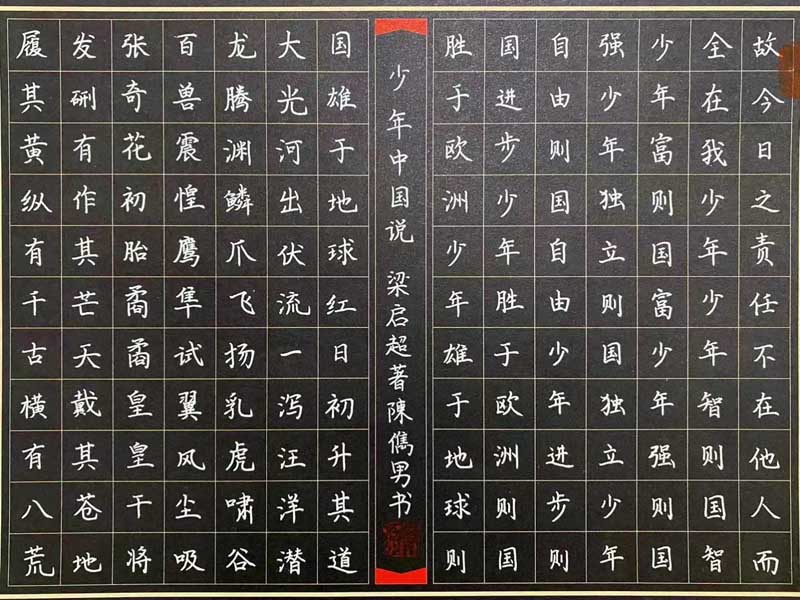 故今日之责任不在他人而
全在我少年少年智则国智
少年富则国富少年强则国
强少年独立则国独立少年
自由则国自由少年进步则
国进步少年胜于欧洲则国
胜于欧洲少年雄于地球则
少年中国说 梁启超著陳儁男书
国雄于地球红日初升其道
大光河出伏流一泻汪洋潜
龙腾渊鳞爪飞扬乳虎啸谷
百兽震惶鹰隼试翼风尘吸
张奇花初胎矞矞皇皇干将
发硎有作其芒天戴其苍地
履其黄纵有千古横有八荒